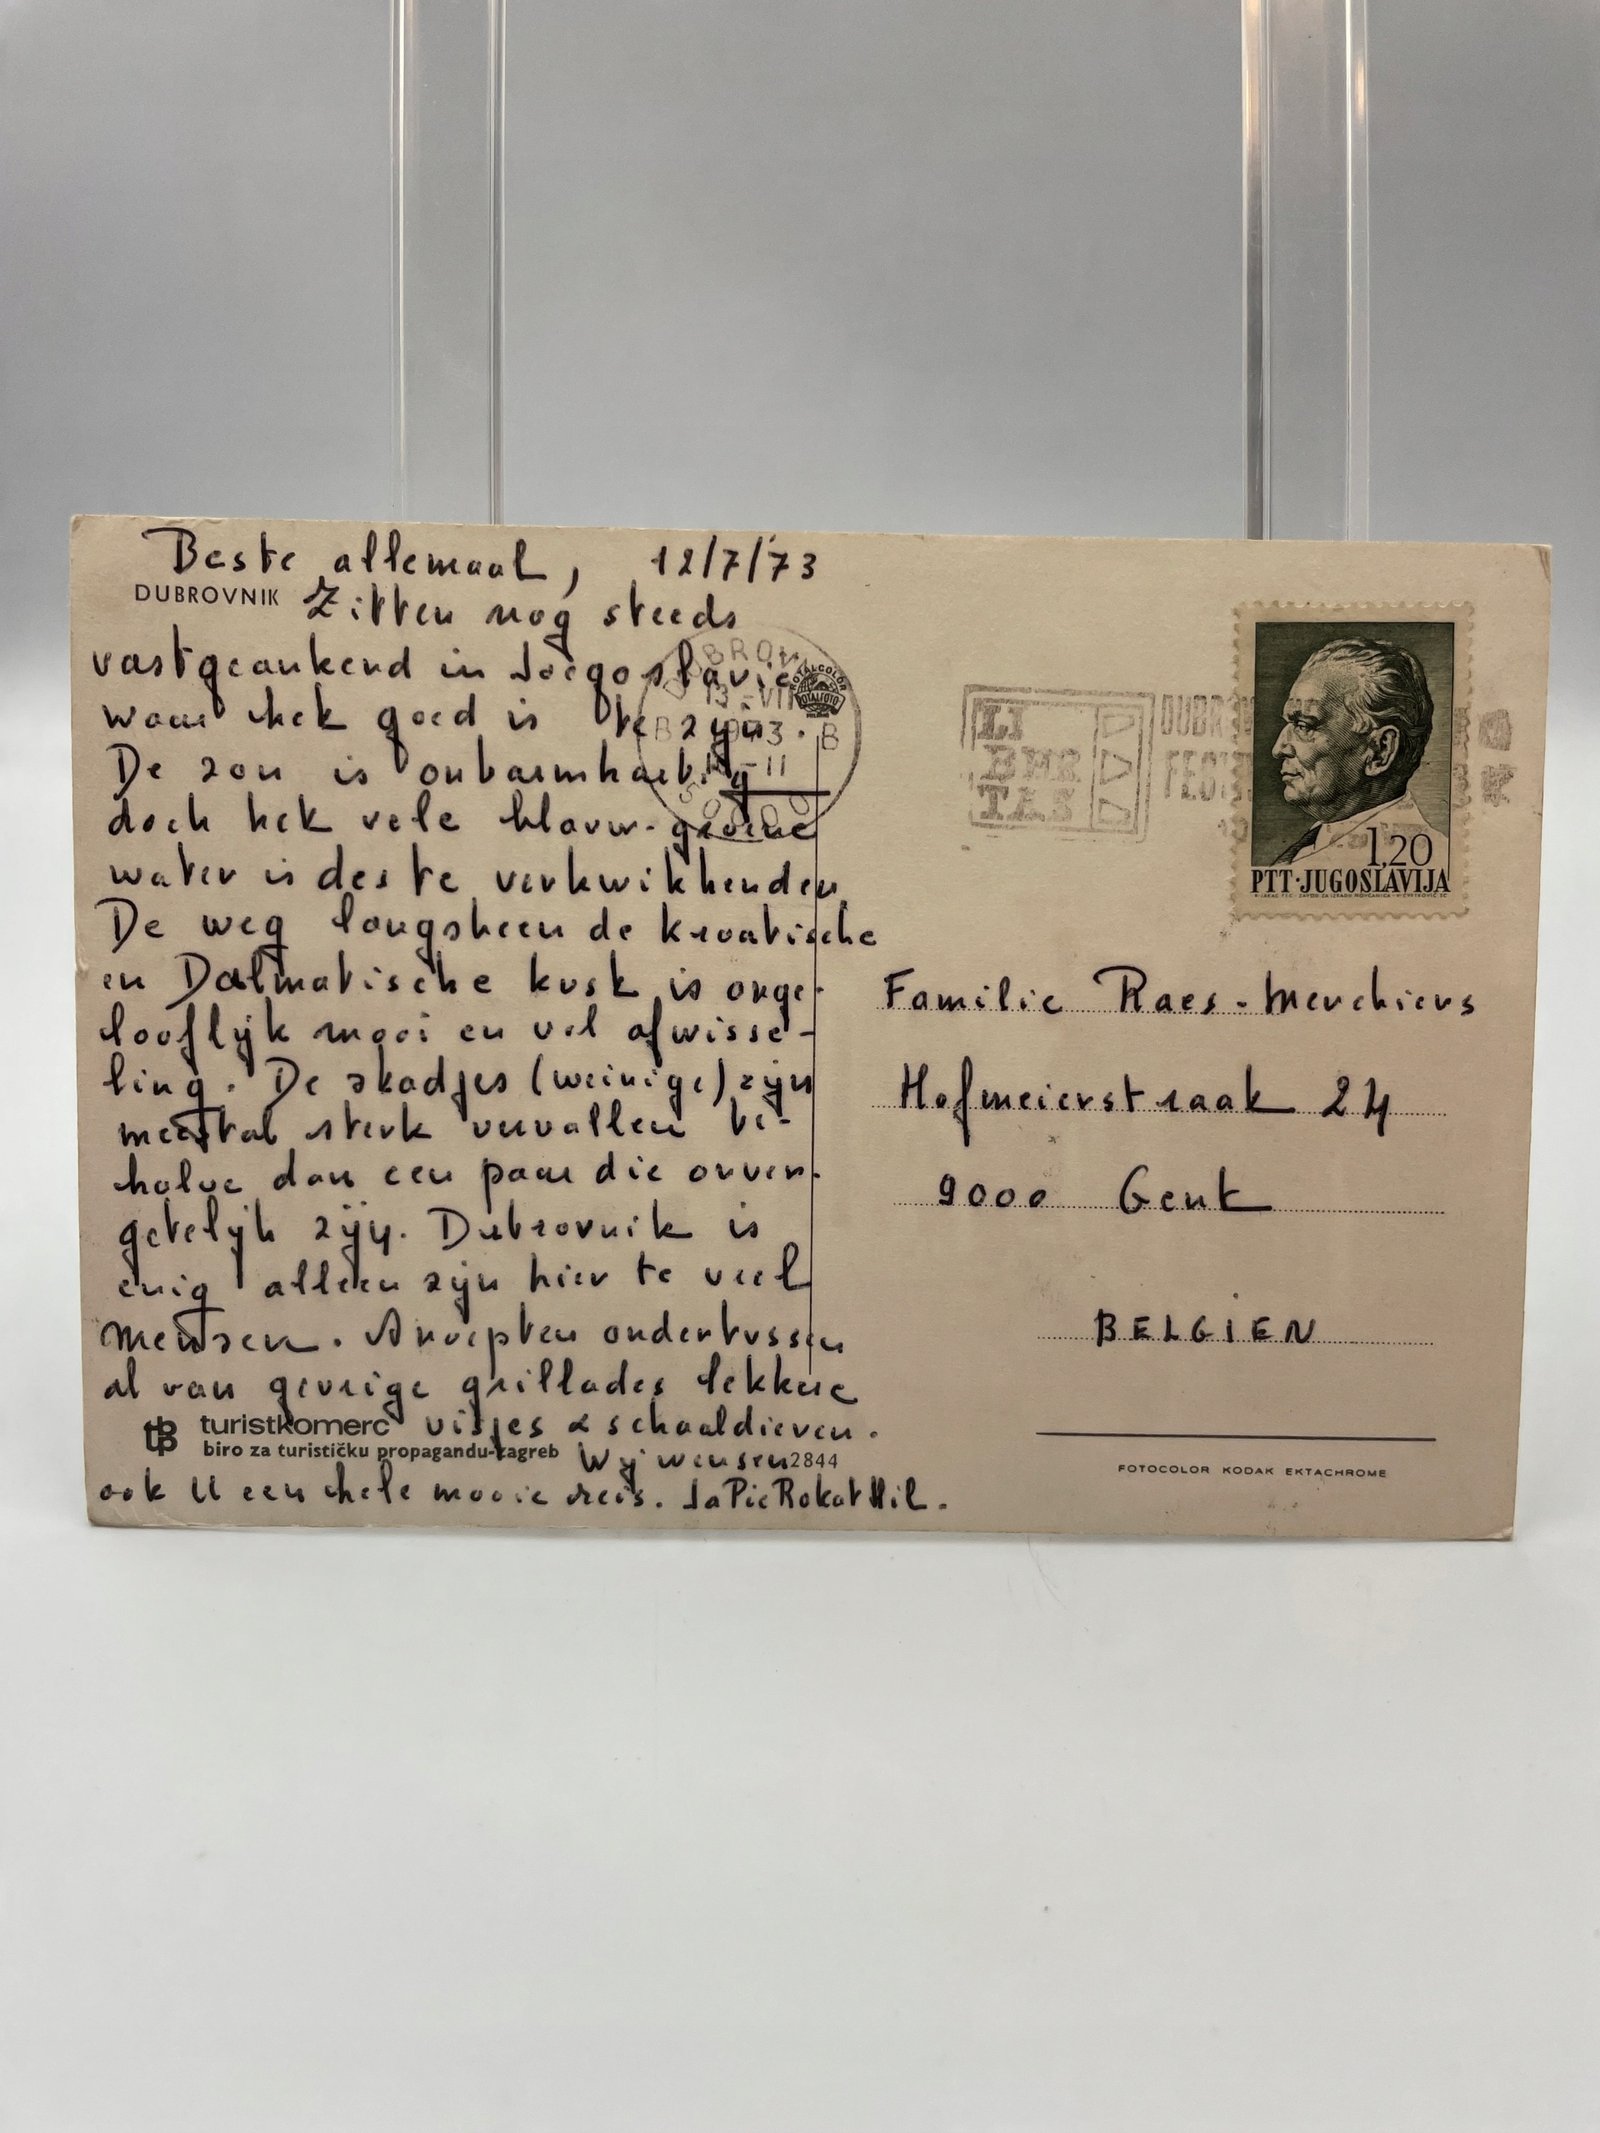 Beste allemaal, 12/7/'73
DUBROVNIK
Zitten nog steeds
vastgeankerd in Joegoslavie
waar het goed is te zijn.
De zon is onbarmhartig
doch het vele blauw-groene
water is des te verkwikkender.
De weg langsheen de kroatische
en Dalmatische kust is onge-
looflijk mooi en vol afwisse-
ling. De stadjes (weinige) zijn
meestal sterk vervallen be-
halve dan een paar die onver-
getelijk zijn. Dubrovnik is
enig alleen zijn hier te veel
mensen. Snoepten ondertussen
al van geurige grillades lekkere
visjes & schaaldieren.
turistkomerc
biro za turističku propagandu-zagreb
2844
Wij wensen
ook U een hele mooie reis. JaPieRokatHil.
DUBROV
13-VII
B 1973 B
-11
TOTALCOLOR
TOTALFOTO
LI
BER
TAS
DUBR
1,20
PTT·JUGOSLAVIJA
Familie Raes-Merchiers
Hofmeierstraat 24
9000 Gent
BELGIEN
FOTOCOLOR KODAK EKTACHROME